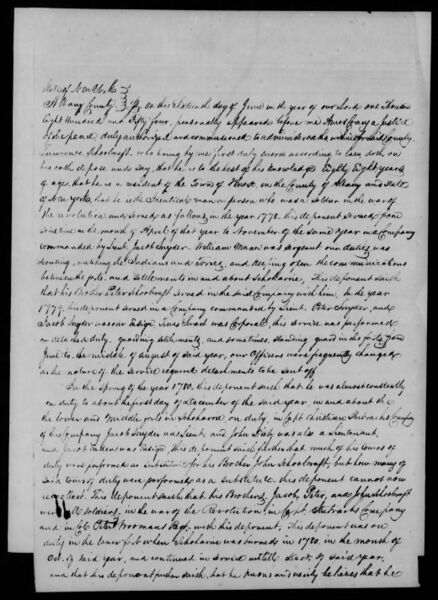 State of New York
Albany County } SS. on this sixteenth day of June in the year of our Lord one Thousand
Eight Hundred and Fifty four, personally appeared before me Amos Cary a justice
of the peace, duly authorized and commissioned to administer oaths within for said County,
Lawrence Schoolcraft, who being by me first duly sworn according to law doth on
his oath depose and say, that he is to the best of his knowledge Eighty Eight years
of age, that he is a resident of the Town of Knox, in the County of Albany and State
of New York, that he is the identical man or person who was a Soldier in the war of
the revolution and served as follows, in the year 1778. this deponent served from
sometime in the month of April of that year to November of the same year in a Company
commanded by Lieut. Jacob Snyder. William Mann was sergeant our duties was
scouting, watching the Indians and Tories, and keeping open the communications
between the posts and settlements in and about Schoharie, This deponent saith
that his Brother Peter Schoolcraft served in the said Company with him, In the year
1779, his deponent served in a Company commanded by Lieut. Peter Snyder, and
Jacob Snyder was our Ensign was Corporal, this service was performed
on detached duty, guarding settlements, and sometimes, standing guard in the forts from
June to the middle of August of said year, our Officers were frequently changed
as the nature of the service required detachments to be sent off
In the spring of the year 1780. this deponent saith that he was almost constantly
on duty to about the first day of December of the said year, in and about the
the lower and middle forts in Schoharie on duty, in Capt Christian Company
of his Company Jacob Snyder was Lieut. and John was also a Lieutenant,
and Jacob was Ensign, this deponent saith further that much of his tours of
duty were performed as substitute for his Brother John Schoolcraft, but how many of
said tours of duty were performed as a substitute this deponent cannot now
recollect. This deponent saith that his Brothers Jacob, Peter, and John Schoolcraft
were soldiers, in the war of the Revolution in Capt. Company
and in Col. Peter Vroomans Regt. with this deponent, This deponent was on
duty in the lower fort when Schoharie was burned in 1780. in the month of
Oct. of said year, and continued in service untill Dect. of said year.
and that this deponent further saith, that he knows and verily believes that he